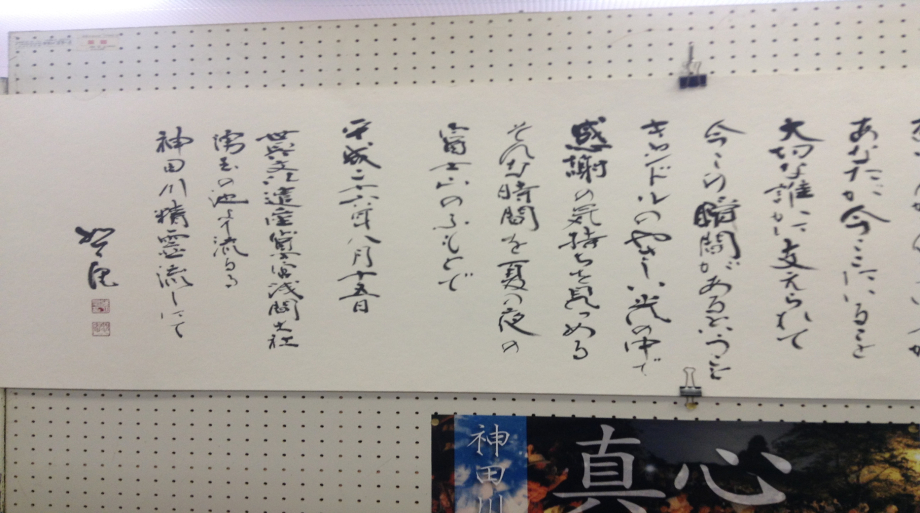 あなたが今ここにいることを
大切な誰かに支えられて
今この瞬間があるということ
キャンドルのやさしい光の中で
感謝の気持ちを見つめる
そんな時間を夏の夜の
富士山のふもとで
平成二十六年八月十五日
世界文化遺産富士山本宮浅間大社
湧玉の池より流るる
神田川精霊流しにて
真心
神田川